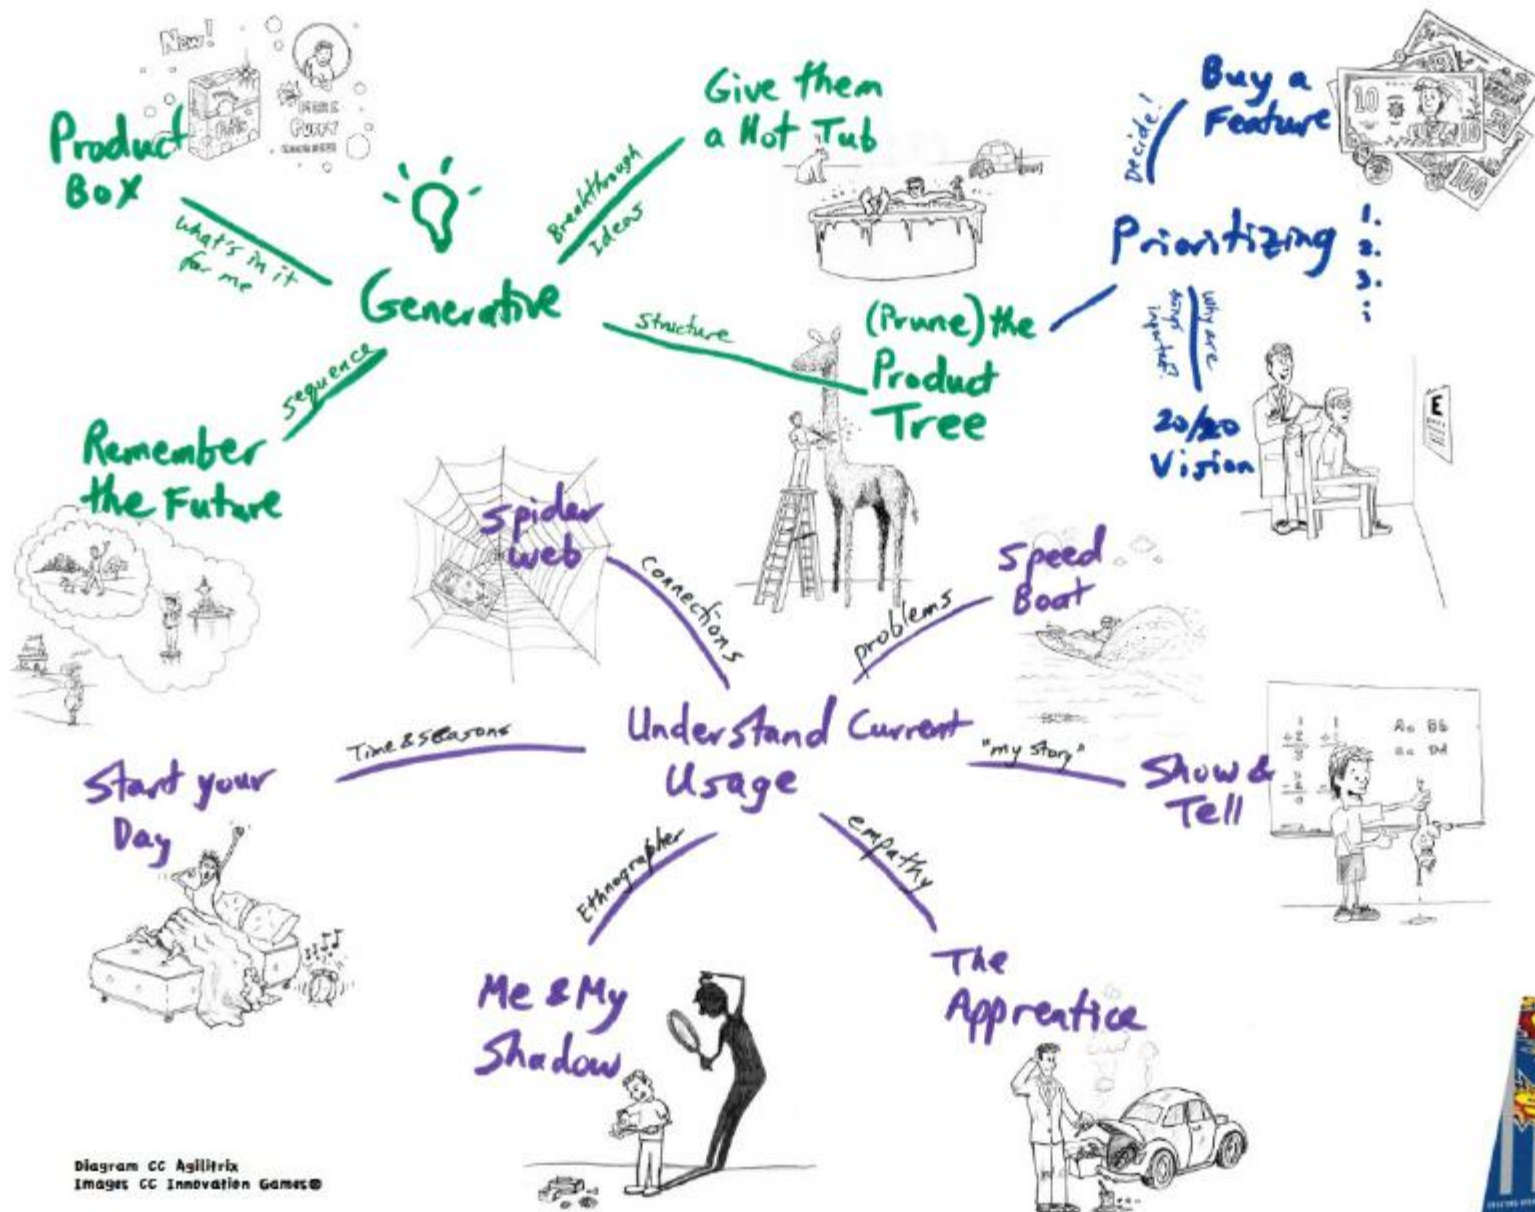 New!
Product
Box
MORE
PUFFY
What's in it
for me
Generative
Breakthrough
Ideas
Give them
a Hot Tub
Structure
(Prune) the
Product
Tree
Sequence
Remember
the Future
Decide!
Buy a
Feature
10
10
100
Prioritizing
1.
2.
3.
Why are
things
important?
20/20
Vision
E
Spider
web
Connections
problems
Speed
Boat
Understand Current
Usage
Time & Seasons
Start your
Day
"my story"
Show &
Tell
Aa Bb
Ethnographer
Me & My
Shadow
empathy
The
Apprentice
Diagram CC Agilitrix
Images CC Innovation Games®